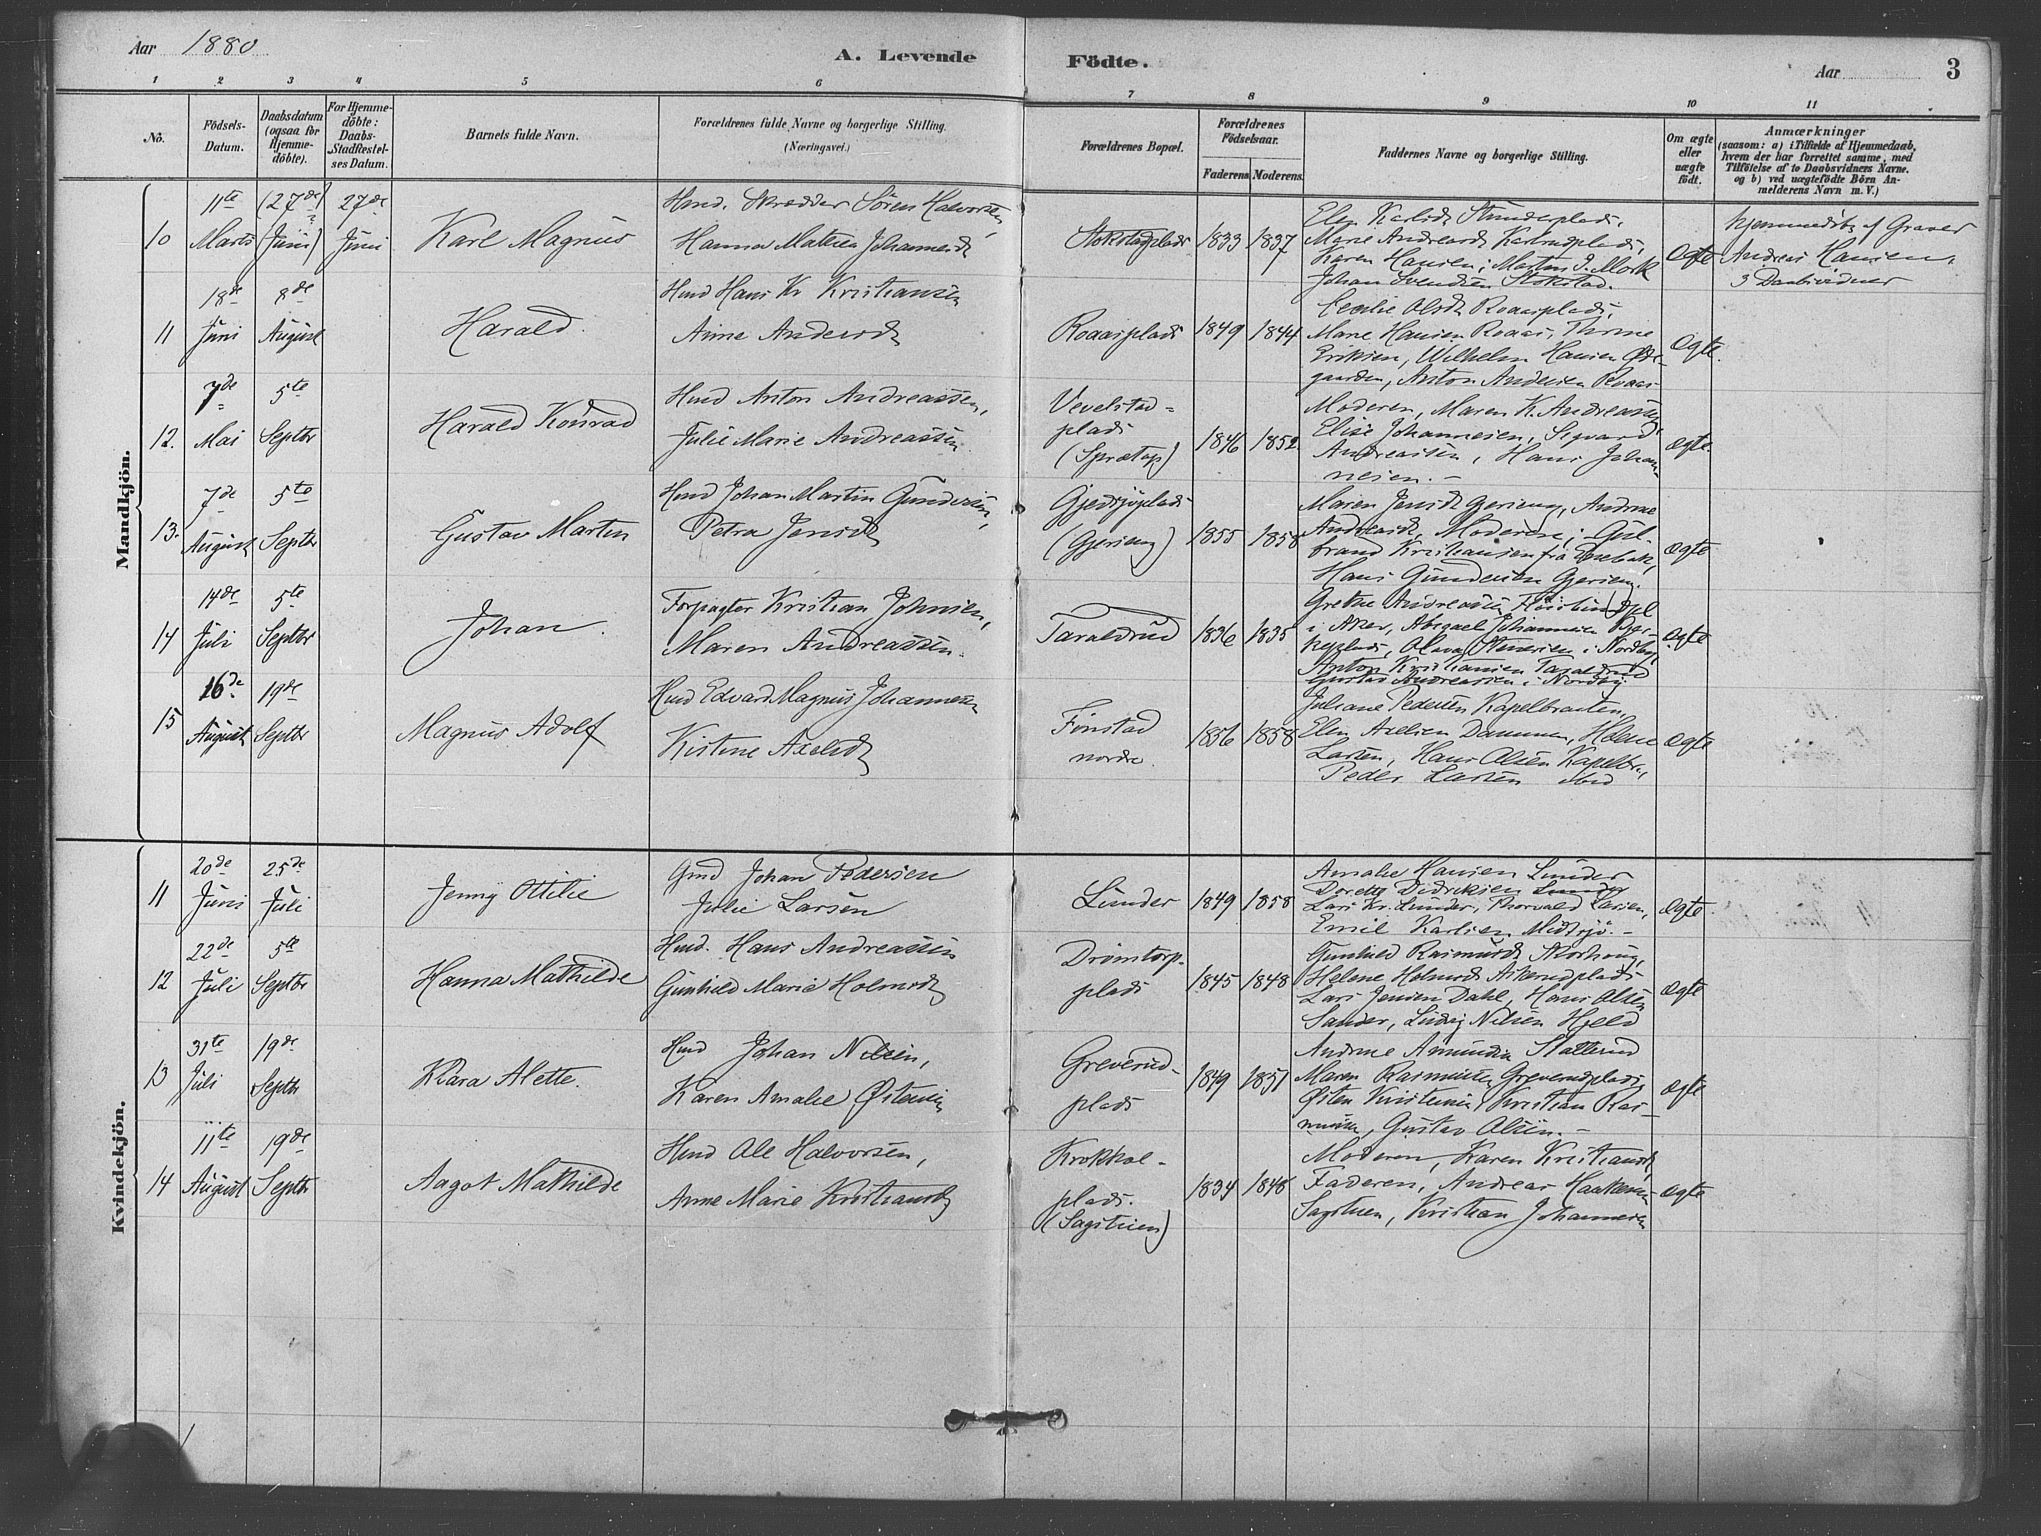 Aar 1880
A. Levende Födte.
Aar
3
1 2 3 4 5 6 7 8 9 10 11
No.
Födsels-Datum.
Daabsdatum (ogsaa for Hjemme-döbte).
For Hjemme-döbte: Daabs-Stadfæstel-ses Datum.
Barnets fulde Navn.
Forældrenes fulde Navne og borgerlige Stilling. (Næringsvei.)
Forældrenes Bopæl.
Forældrenes Födselsaar.
Faderens. Moderens.
Faddernes Navne og borgerlige Stilling.
Om ægte eller uægte födt.
Anmærkninger
(saasom: a) i Tilfælde af Hjemmedaab,
hvem der har forrettet samme, med
Tilföielse af to Daabsvidners Navne.
og b) ved uægtefödte Börn An-
melderens Navn m. V.)
Mandkjön.
10
11te Marts
(27de Juni)
27de Juni
Karl Magnus
Husd. Skrædder Søren Halvorsen,
Hanna Mathea Johannesd
Stokstadplads
1833 1837
Elen Karlsd Stunderplads,
Marie Andreasd Karlsrudplads,
Karen Hansen; Martin J. Mork
Johan Svendsen Stokstad.
Ægte
Hjemmedøbt af Graver
Andreas Hansen.
3 Daabsvidner
11
18de Juni
8de August
Harald.
Husd Hans Kr Kristiansen
Anne Andersd
Roaasplads
1849 1844
Cecilie Olsd Roaasplads,
Marie Hansen Roaas, Thrine
Eriksen, Wilhelm Hansen Øde-
gaarden, Anton Andersen Roaas
Ægte.
12.
7de Mai
5te Septbr
Harald Konrad
Husd Anton Andreassen,
Julie Marie Andreassen.
Vevelstad-
plads
(Sprætop)
1846 1852.
Moderen, Maren K. Andreassen
Elise Johannesen, Sigvard
Andreassen, Hans Johan-
nesen. -
Ægte.
13.
7de August
5te Septbr
Gustav Martin
Husd Johan Martin Gundersen,
Petra Jensd
Gjedsjøplads
(Gjerieng)
1855 1858
Maren Jensd Gjerieng, Andrine
Andreasd, Moderen; Gul-
brand Kristiansen fra Enebak,
Hans Gundersen Gjerieng.
Ægte
14
14de Juli
5te Septbr
Johan.
Forpagter Kristian Johnsen,
Maren Andreassen.
Taraldrud
1836 1835
Grethe Andreassen
i Aker, Abigael Johannesen
Olava i Nordby,
Anton Kristiansen Taraldrud
Gustav Andreassen i Nordby
Ægte
15
16de August
19de Septbr
Magnus Adolf
Husd Edvard Magnus Johannesen
Kistine Axelsd
Finstad
nordre.
1856 1858
Juliane Pedersen Kapelbraaten,
Elen Axelsen Dammen, Helene
Larsen, Hans Olsen Kapelbr.,
Peder Larsen ibid
Ægte
Kvindekjön.
11
20de Juni
25de Juli
Jenny Ottilie
Gmd Johan Pedersen
Julie Larsen
Lunder
1849 1858
Amalie Hansen Lunder
Dorette Didriksen Lunder
Lars Kr. Lunder, Thorvald Larsen,
Emil Karlsen Midtsjø. -
Ægte.
12
22de Juli
5te Septbr
Hanna Mathilde
Husd. Hans Andreassen
Gunhild Marie Holmsd
Drømtorp-
plads
1845 1848
Gunhild Rasmusd Storhoug,
Helene Holmsd Askerudplads
Lars Jensen Dahl, Hans Olsen
Sander, Ludvig Nilsen Hjeld
Ægte
13
31te Juli
19de Septbr
Klara Alette.
Husd Johan Nilsen,
Karen Amalie Østensen
Greverud-
plads
1849 1851
Andrine Amundsen Stallerud
Maren Rasmussen Greverudplads,
Østen Kristensen, Kristian Ras-
mussen, Gustav Olsen. -
Ægte
14
11te August
19de Septbr
Aagot Mathilde
Husd Ole Halvorsen,
Anne Marie Kristiansd
Krokkol-
plads.
(Sagstuen)
1834 1848
Moderen, Karen Kristiansd,
Faderen, Andreas Haakensen
Sagstuen, Kristian Johannesen
Ægte